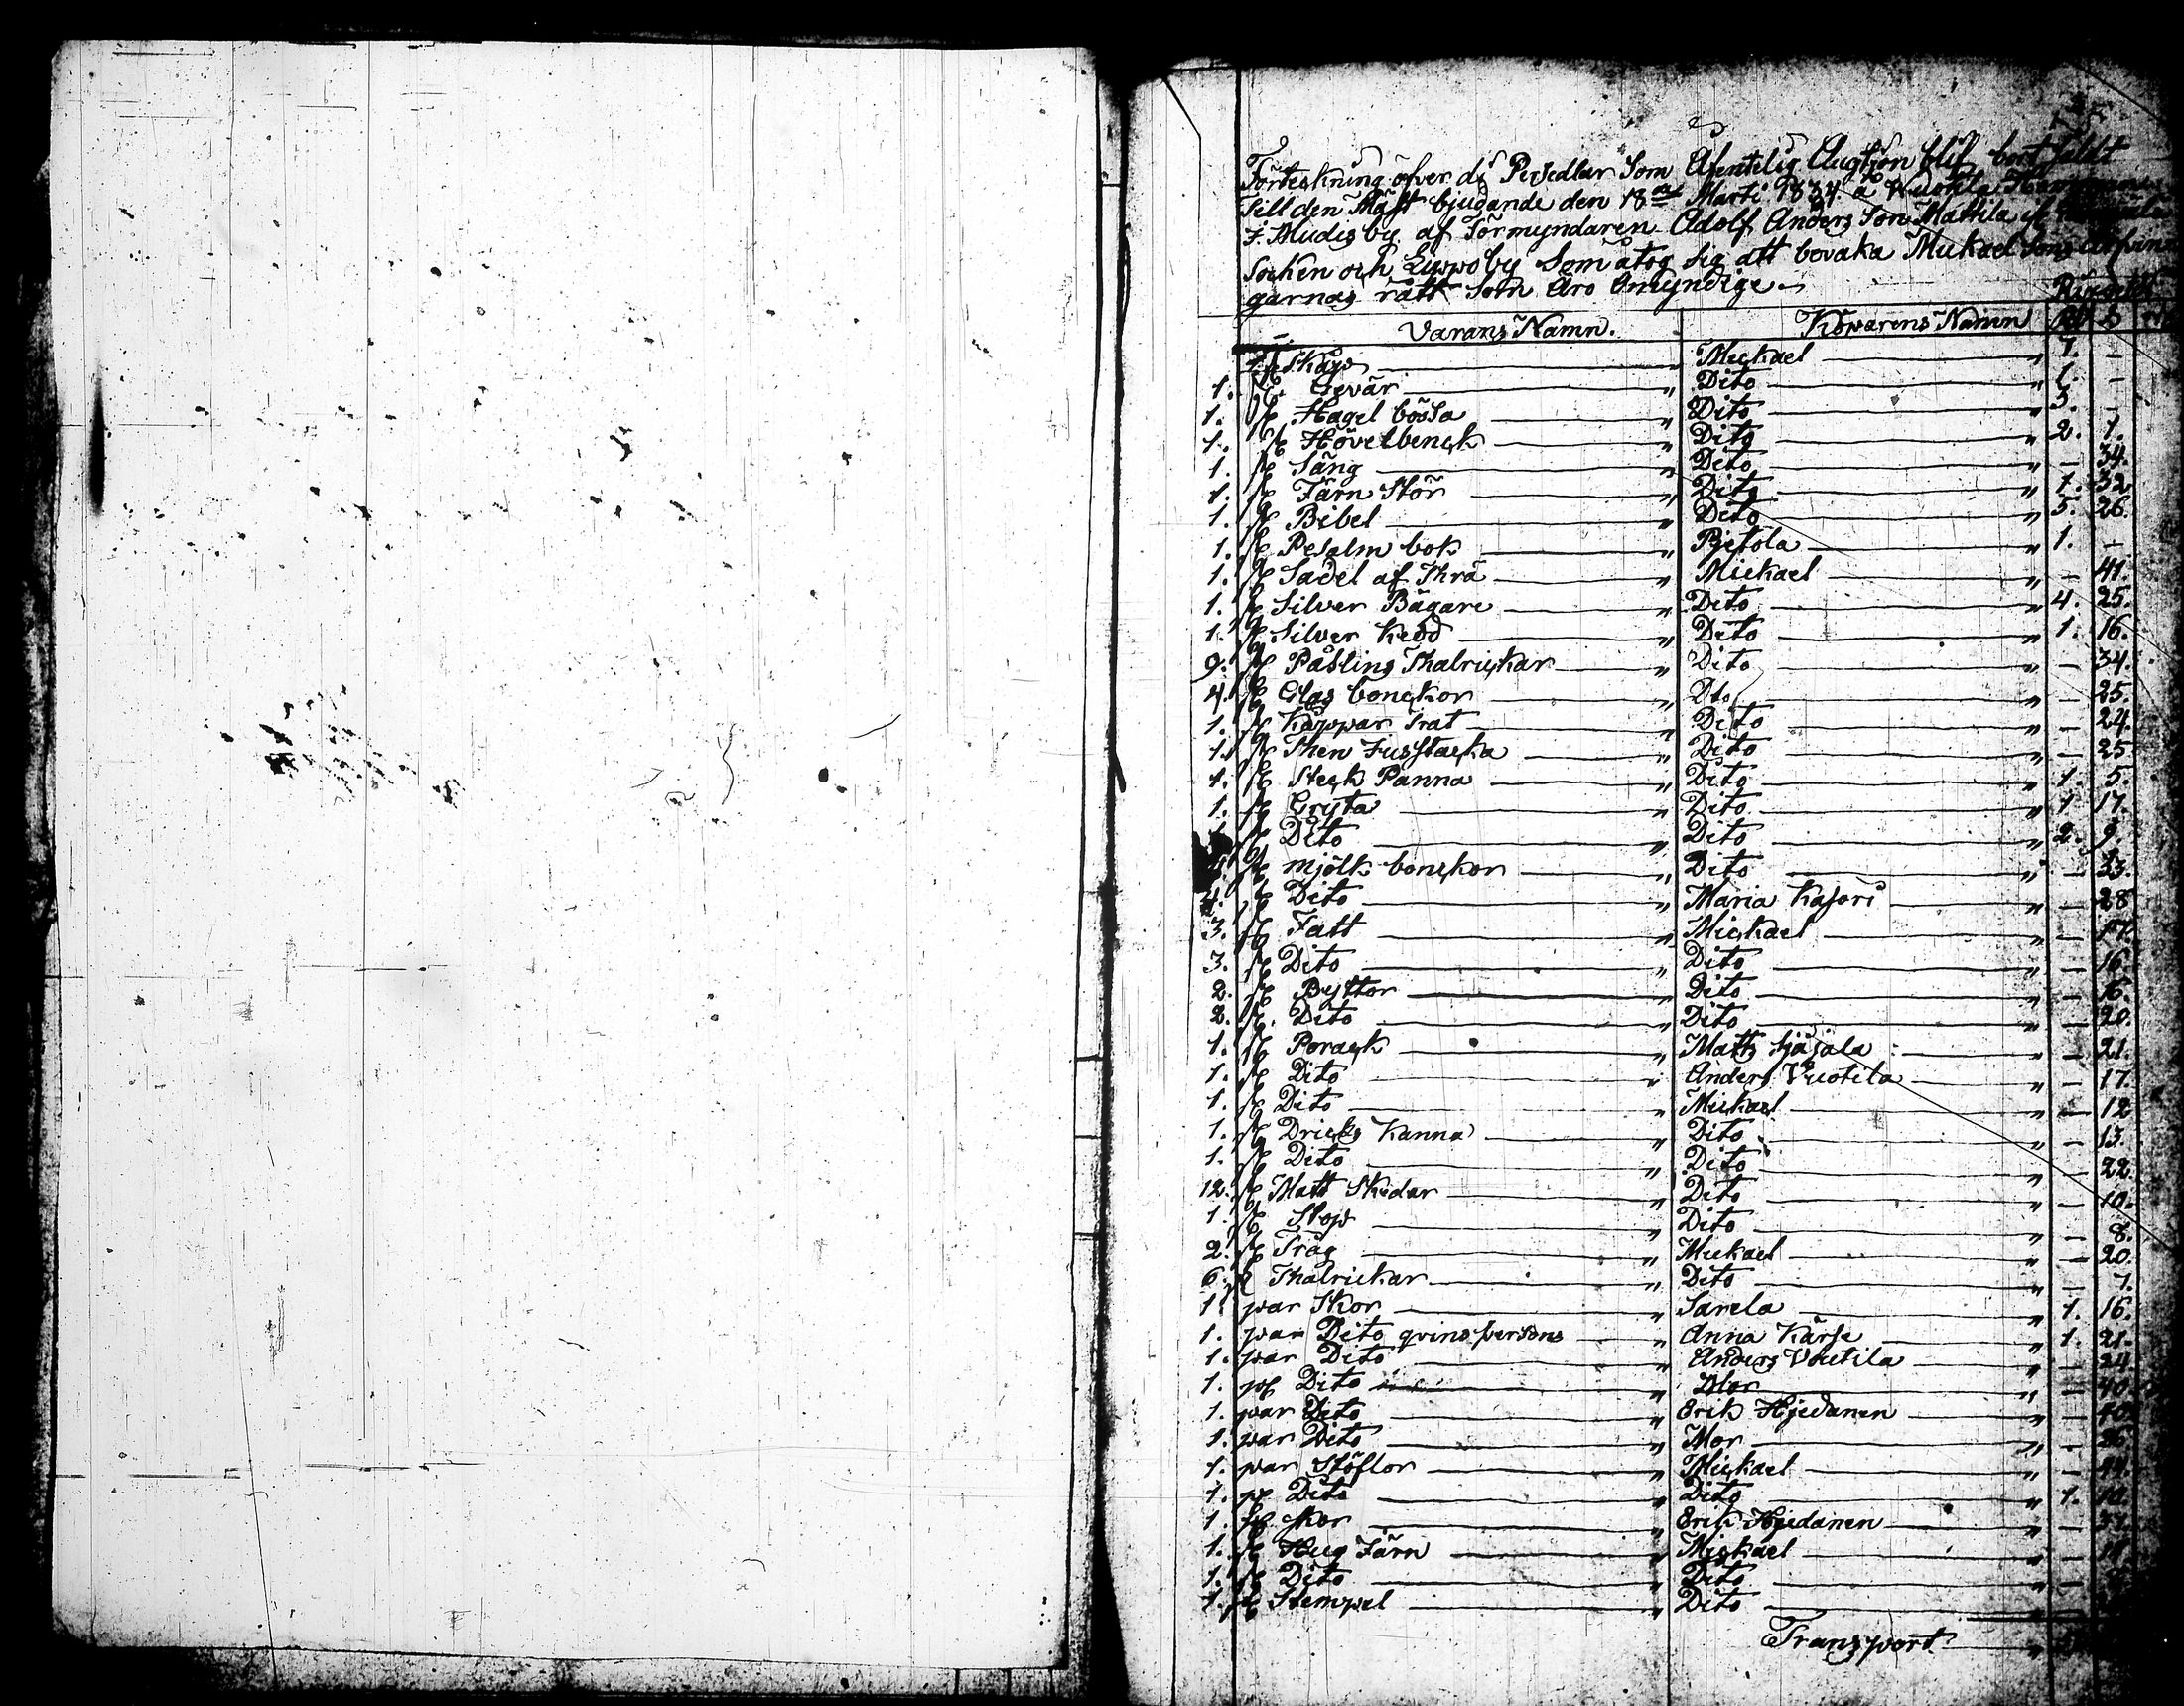 Förteskning öfver di Persedlar Som Ofentelig Augtjon blif bort såldt
Till den Mäst bjudande den 18de Marti 1834 å Wuotila
J. Mudis by af Förmyndaren Adolf Anders Son Mattila
Socken och Lyppo by Som åtog sig att bevaka Mickael Sons
garnas rätt Som äro Omyndige
Varans Namn. Köparens Namn
Skåp Mickael 7. –
1. st Gevär Dito 1. –
1. st Hagel bössa Dito 3. –
1. st Hövelbenck Dito 2. 1.
1. st Säng Dito – 34.
1. st Järn Stör Dito 1. 32
1. st Bibel Dito 5. 26.
1. st Pesalm bok Pjetola 1. –
1. st Sadel af Thrä Mickael – 41.
1. st Silver Bägare Dito 4. 25.
1. st Silver Kedd Dito 1. 16.
9. st Påsling Thalrickar Dito – 34.
4. st Glas bonckor Dto – 25.
1. st Koppar Fat Dito – 24.
1. st Then Jusstacka Dito – 25
1. st Steck Panna Dito 1. 5.
1. st Gryta Dito 1 17.
1. st Dito Dito 2. 9.
st mjölk bonckor Dito – 23.
4. st Dito Maria Kasori – 28
3. st Fatt Mickael – 17.
3. st Dito Dito – 16.
2. st Byttor Dito – 16.
2. st Dito Dito – 20.
1. st Porack Matts Sjäjala – 21.
1. st Dito Anders Vuotila – 17.
1. st Dito Mickael – 12
1. st Dricks Kanna Dito – 13.
1. st Dito Dito – 22.
12. st Matt Skedar Dito – 10.
1. st Stop Dito – 8.
2. st Tråg Mickael – 20.
6. st Thalrickar Dito – 7.
1. par Skor Sarela 1. 16.
1. par Dito qvinspersons Anna Kärje 1. 21.
1. par Dito Anders Voutila – 24.
1. pr Dito Mor – 40.
1. par Dito Erik Hjedanen – 40.
1. par Dito Mor – 26.
1. par Stöflor Mickael –
1. pr Dito Dito 1.
1. pr skor Erik Hjedanen –
1. st Hug Järn Mickael –
1. st Dito Dito –
1. st Stempel Dito
Transport